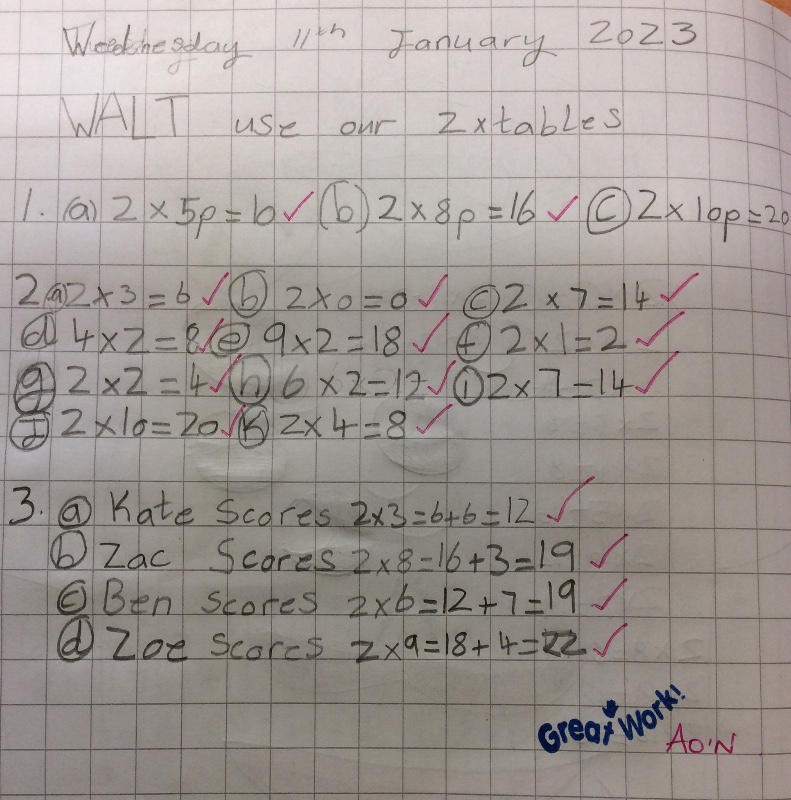 Wednesday 11th January 2023
WALT use our 2xtables
1. (a) 2 x 5p = 10 ✓ (b) 2 x 8p = 16 ✓ (c) 2 x 10p = 20
2 (a) 2 x 3 = 6 ✓ (b) 2 x 0 = 0 ✓ (c) 2 x 7 = 14 ✓
(d) 4 x 2 = 8 ✓ (e) 9 x 2 = 18 ✓ (f) 2 x 1 = 2 ✓
(g) 2 x 2 = 4 ✓ (h) 6 x 2 = 12 ✓ (i) 2 x 7 = 14 ✓
(J) 2 x 10 = 20 ✓ (K) 2 x 4 = 8 ✓
3. (a) Kate Scores 2x3=6+6=12 ✓
(b) Zac Scores 2x8=16+3=19 ✓
(c) Ben scores 2x6=12+7=19 ✓
(d) Zoe scores 2x9=18+4=22 ✓
Great Work!
AO'N